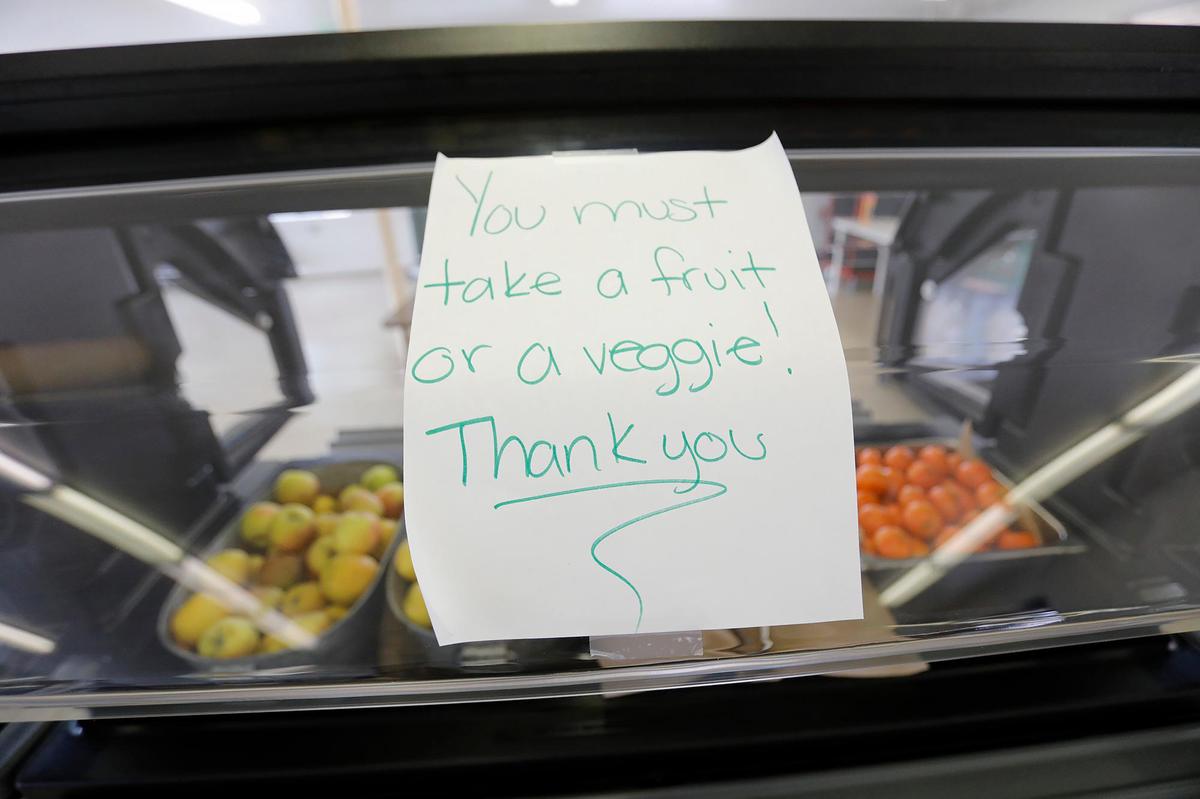 You must
take a fruit
or a veggie!
Thank you